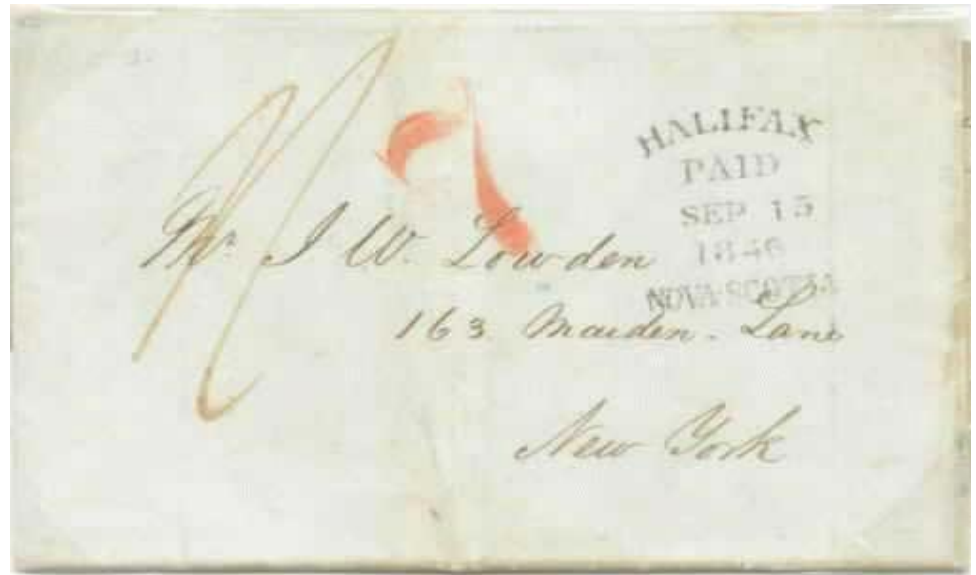 HALIFAX
PAID
SEP 15
1846
NOVA-SCOTIA
Mr. J W. Lowden
163 Maiden-Lane
New York